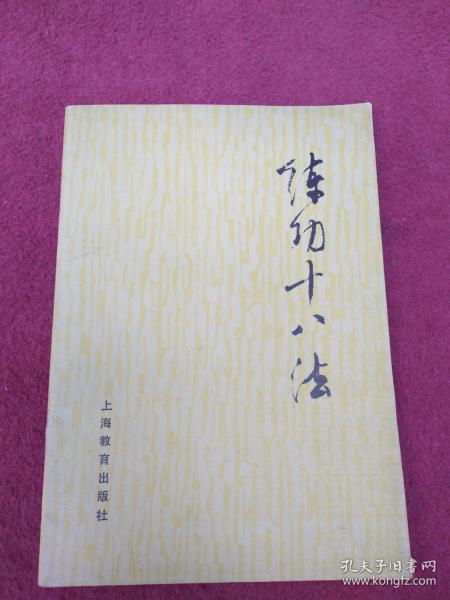 练功十八法
上海教育出版社
孔夫子旧书网
www.kongfz.com